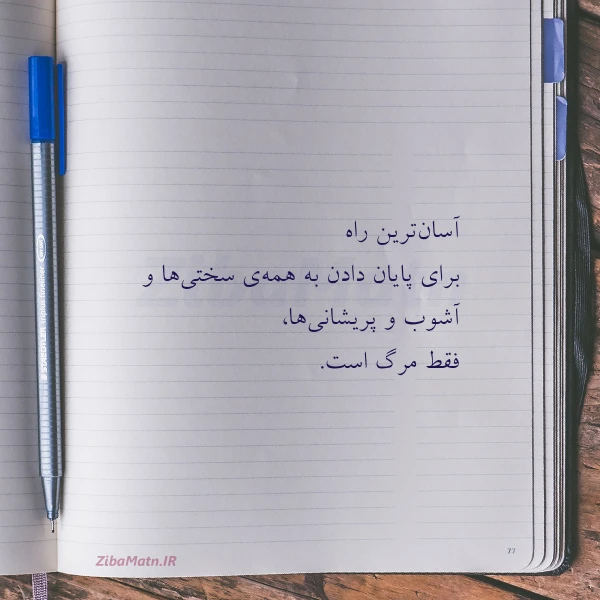 آسان‌ترین راه
برای پایان دادن به همه‌ی سختی‌ها و
آشوب و پریشانی‌ها،
فقط مرگ است.
ZibaMatn.IR